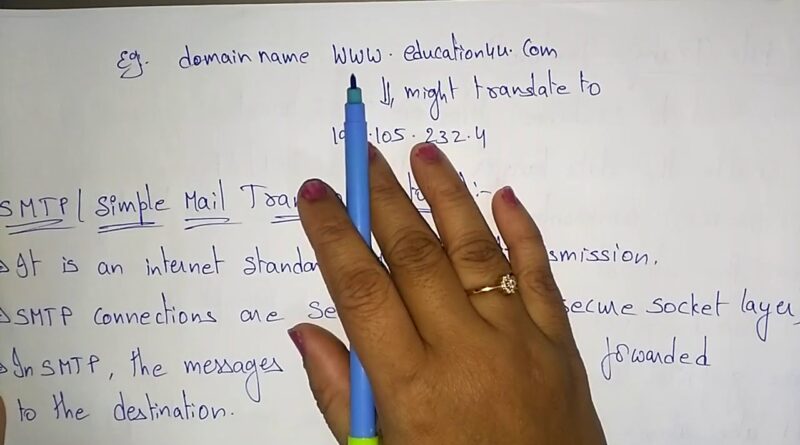 Eg. domain name www.education4u.com
⇓, might translate to
.105.232.4
SMTP | Simple Mail :-
→ It is an internet smission.
→ SMTP connections are secure socket layer,
→ In SMTP, the messages forwarded
to the destination.